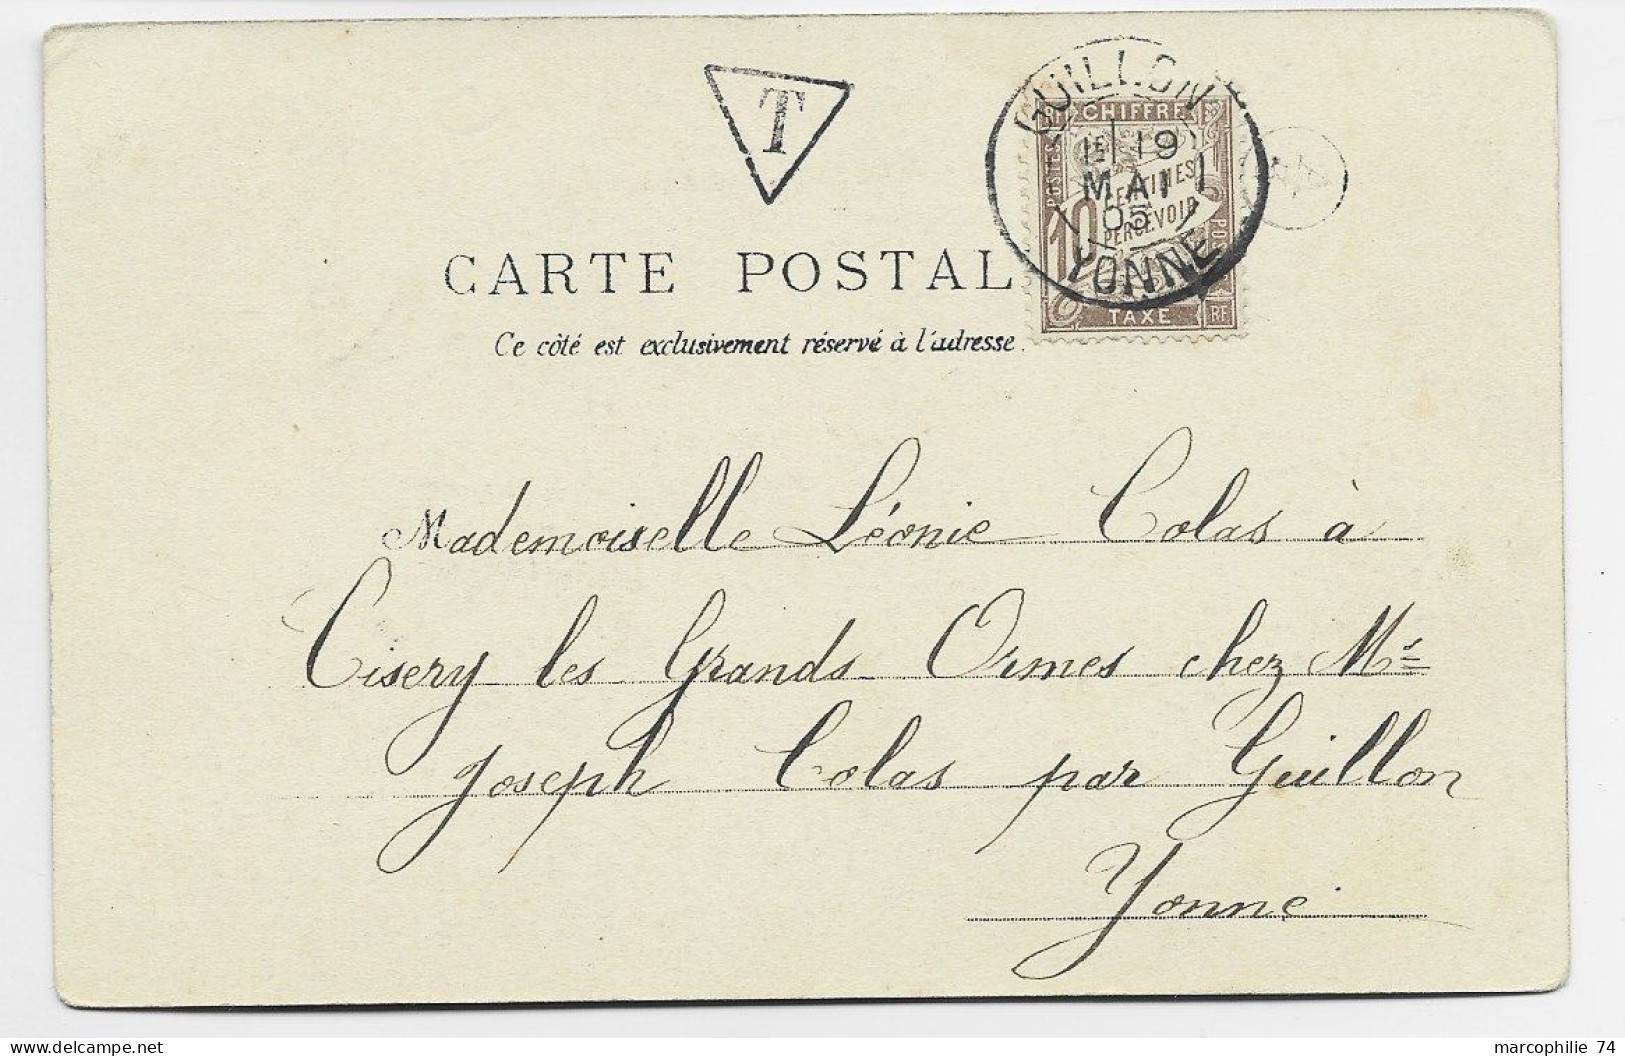 T
GUILLON
1E 19
MAI
05
YONNE
RF CHIFFRE
POSTES
10 CENTIMES
À
PERCEVOIR
TAXE RF
CARTE POSTAL
Ce côté est exclusivement réservé à l'adresse.
Mademoiselle Léonie Colas à
Cisery les Grands Ormes chez Mr
Joseph Colas par Guillon
Yonne
marcophilie 74